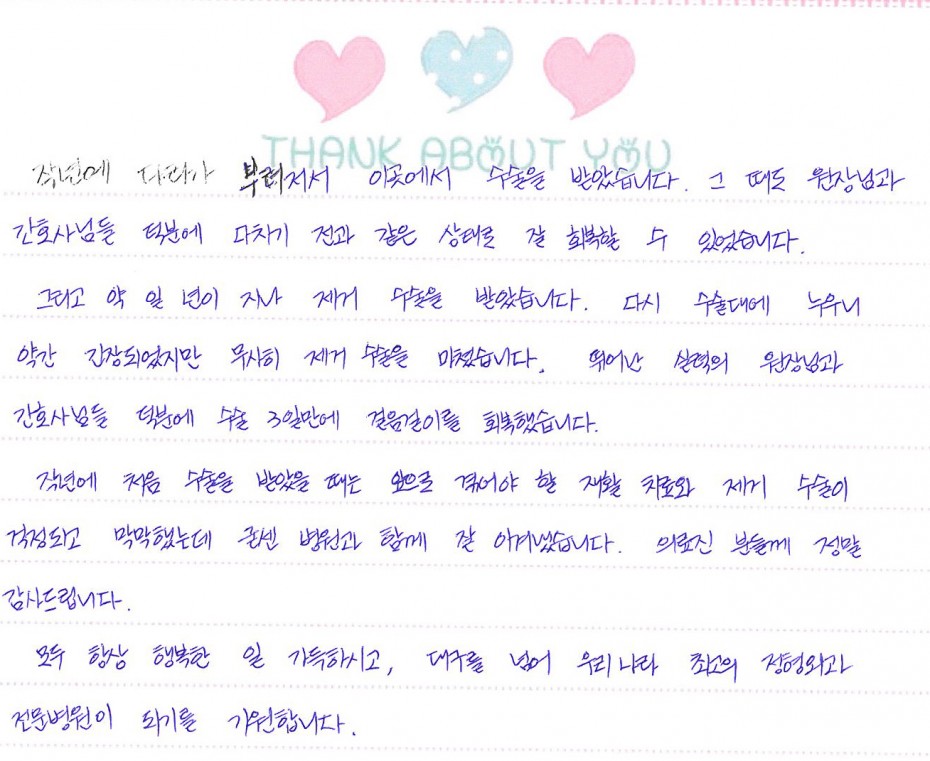 THANK ABOUT YOU
작년에 다리가 부러져서 이곳에서 수술을 받았습니다. 그 때도 원장님과
간호사님들 덕분에 다치기 전과 같은 상태로 잘 회복할 수 있었습니다.
그리고 약 일 년이 지나 제거 수술을 받았습니다. 다시 수술대에 누우니
약간 긴장되었지만 무사히 제거 수술을 마쳤습니다. 뛰어난 실력의 원장님과
간호사님들 덕분에 수술 3일만에 걸음걸이를 회복했습니다.
작년에 처음 수술을 받았을 때는 앞으로 겪어야 할 재활 치료와 제거 수술이
걱정되고 막막했는데 굳센 병원과 함께 잘 이겨냈습니다. 의료진 분들께 정말
감사드립니다.
모두 항상 행복한 일 가득하시고, 대구를 넘어 우리나라 최고의 정형외과
전문병원이 되기를 기원합니다.